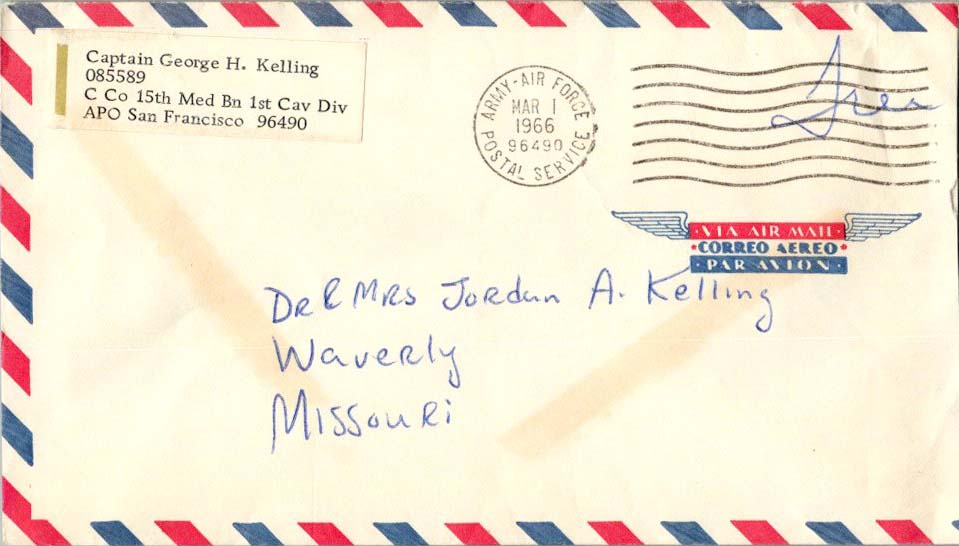 Captain George H. Kelling
085589
C Co 15th Med Bn 1st Cav Div
APO San Francisco 96490
ARMY-AIR FORCE
MAR 1
1966
96490
POSTAL SERVICE
Free
·VIA AIR MAIL·
*CORREO AEREO*
·PAR AVION·
Dr & Mrs Jordan A. Kelling
Waverly
Missouri